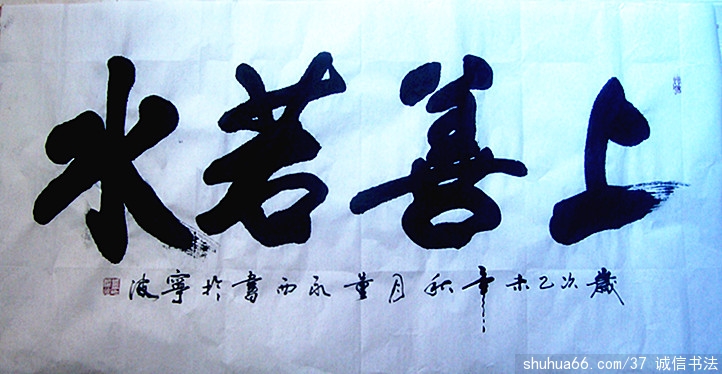 上善若水
歲次乙未年秋月董永西書於寧波
shuhua66.com/37 诚信书法